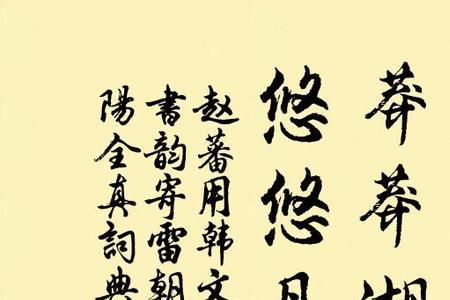 莽莽湖
悠悠月
赵蕃用韩文
书韵寄雷朝
陽全真詞典